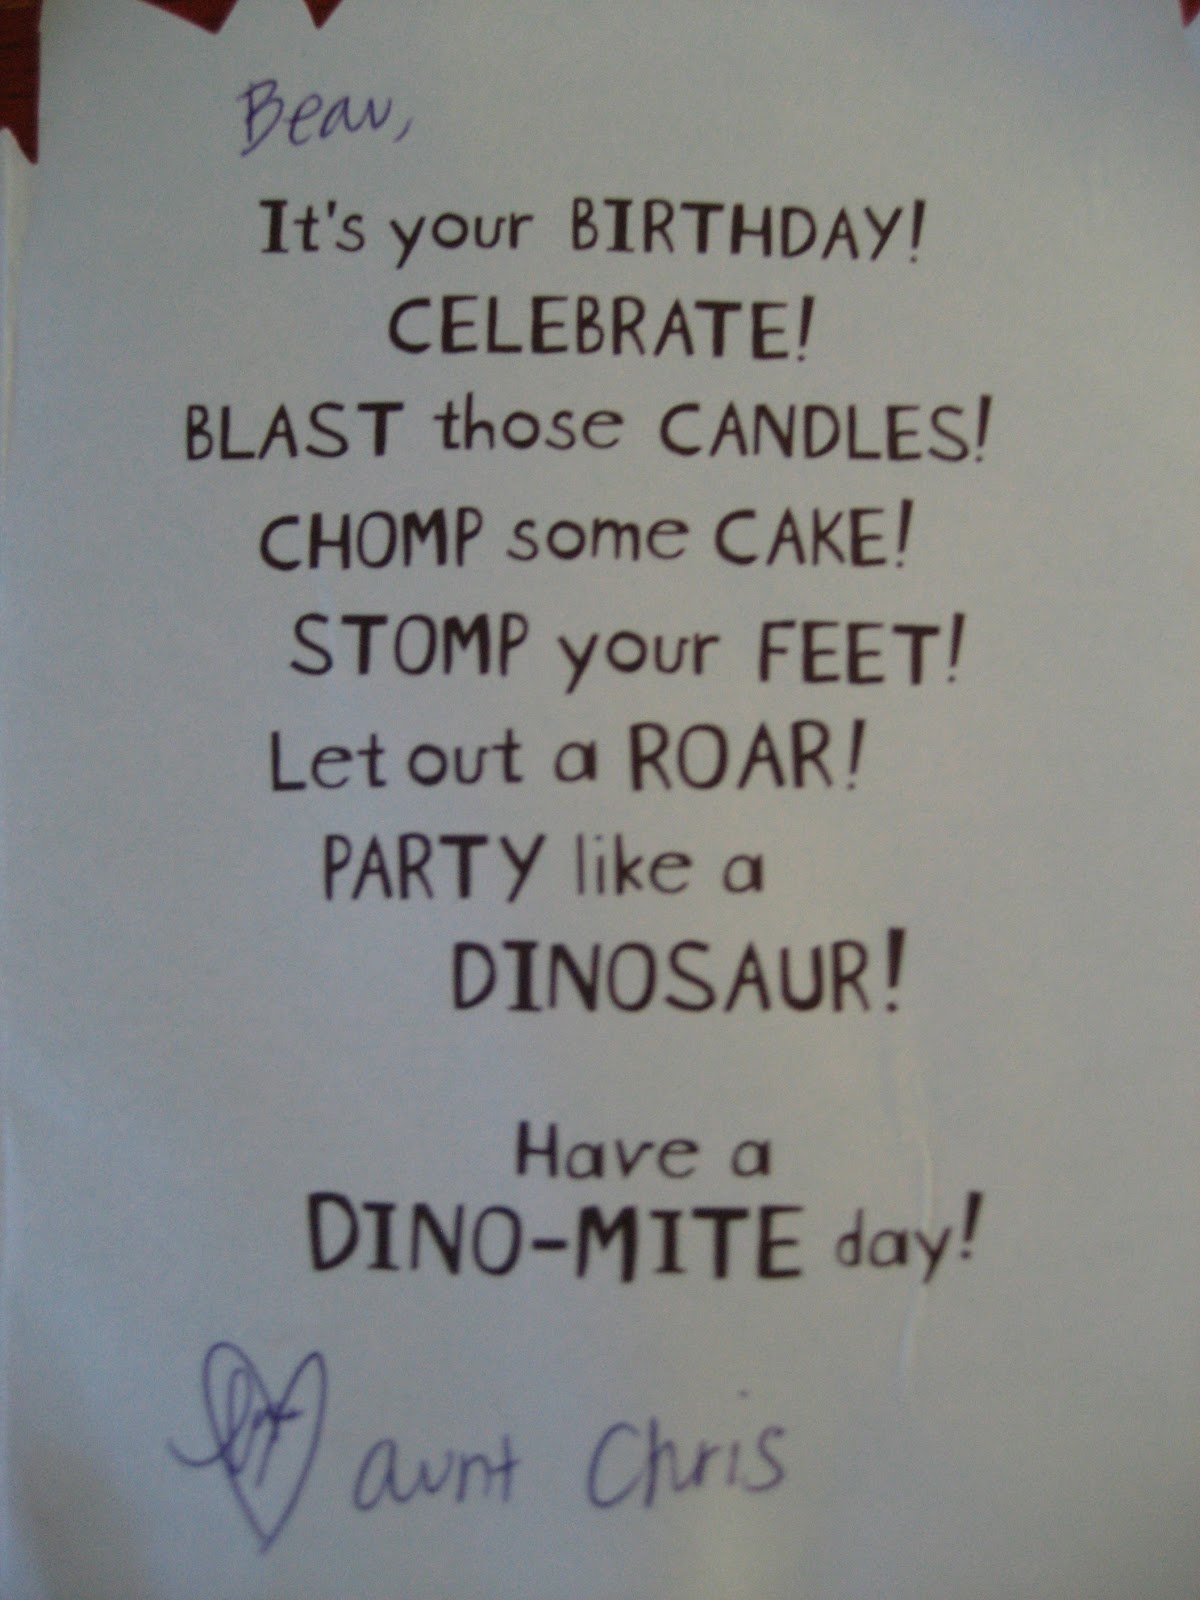 Beau,
It's your BIRTHDAY!
CELEBRATE!
BLAST those CANDLES!
CHOMP some CAKE!
STOMP your FEET!
Let out a ROAR!
PARTY like a
DINOSAUR!
Have a
DINO-MITE day!
aunt Chris